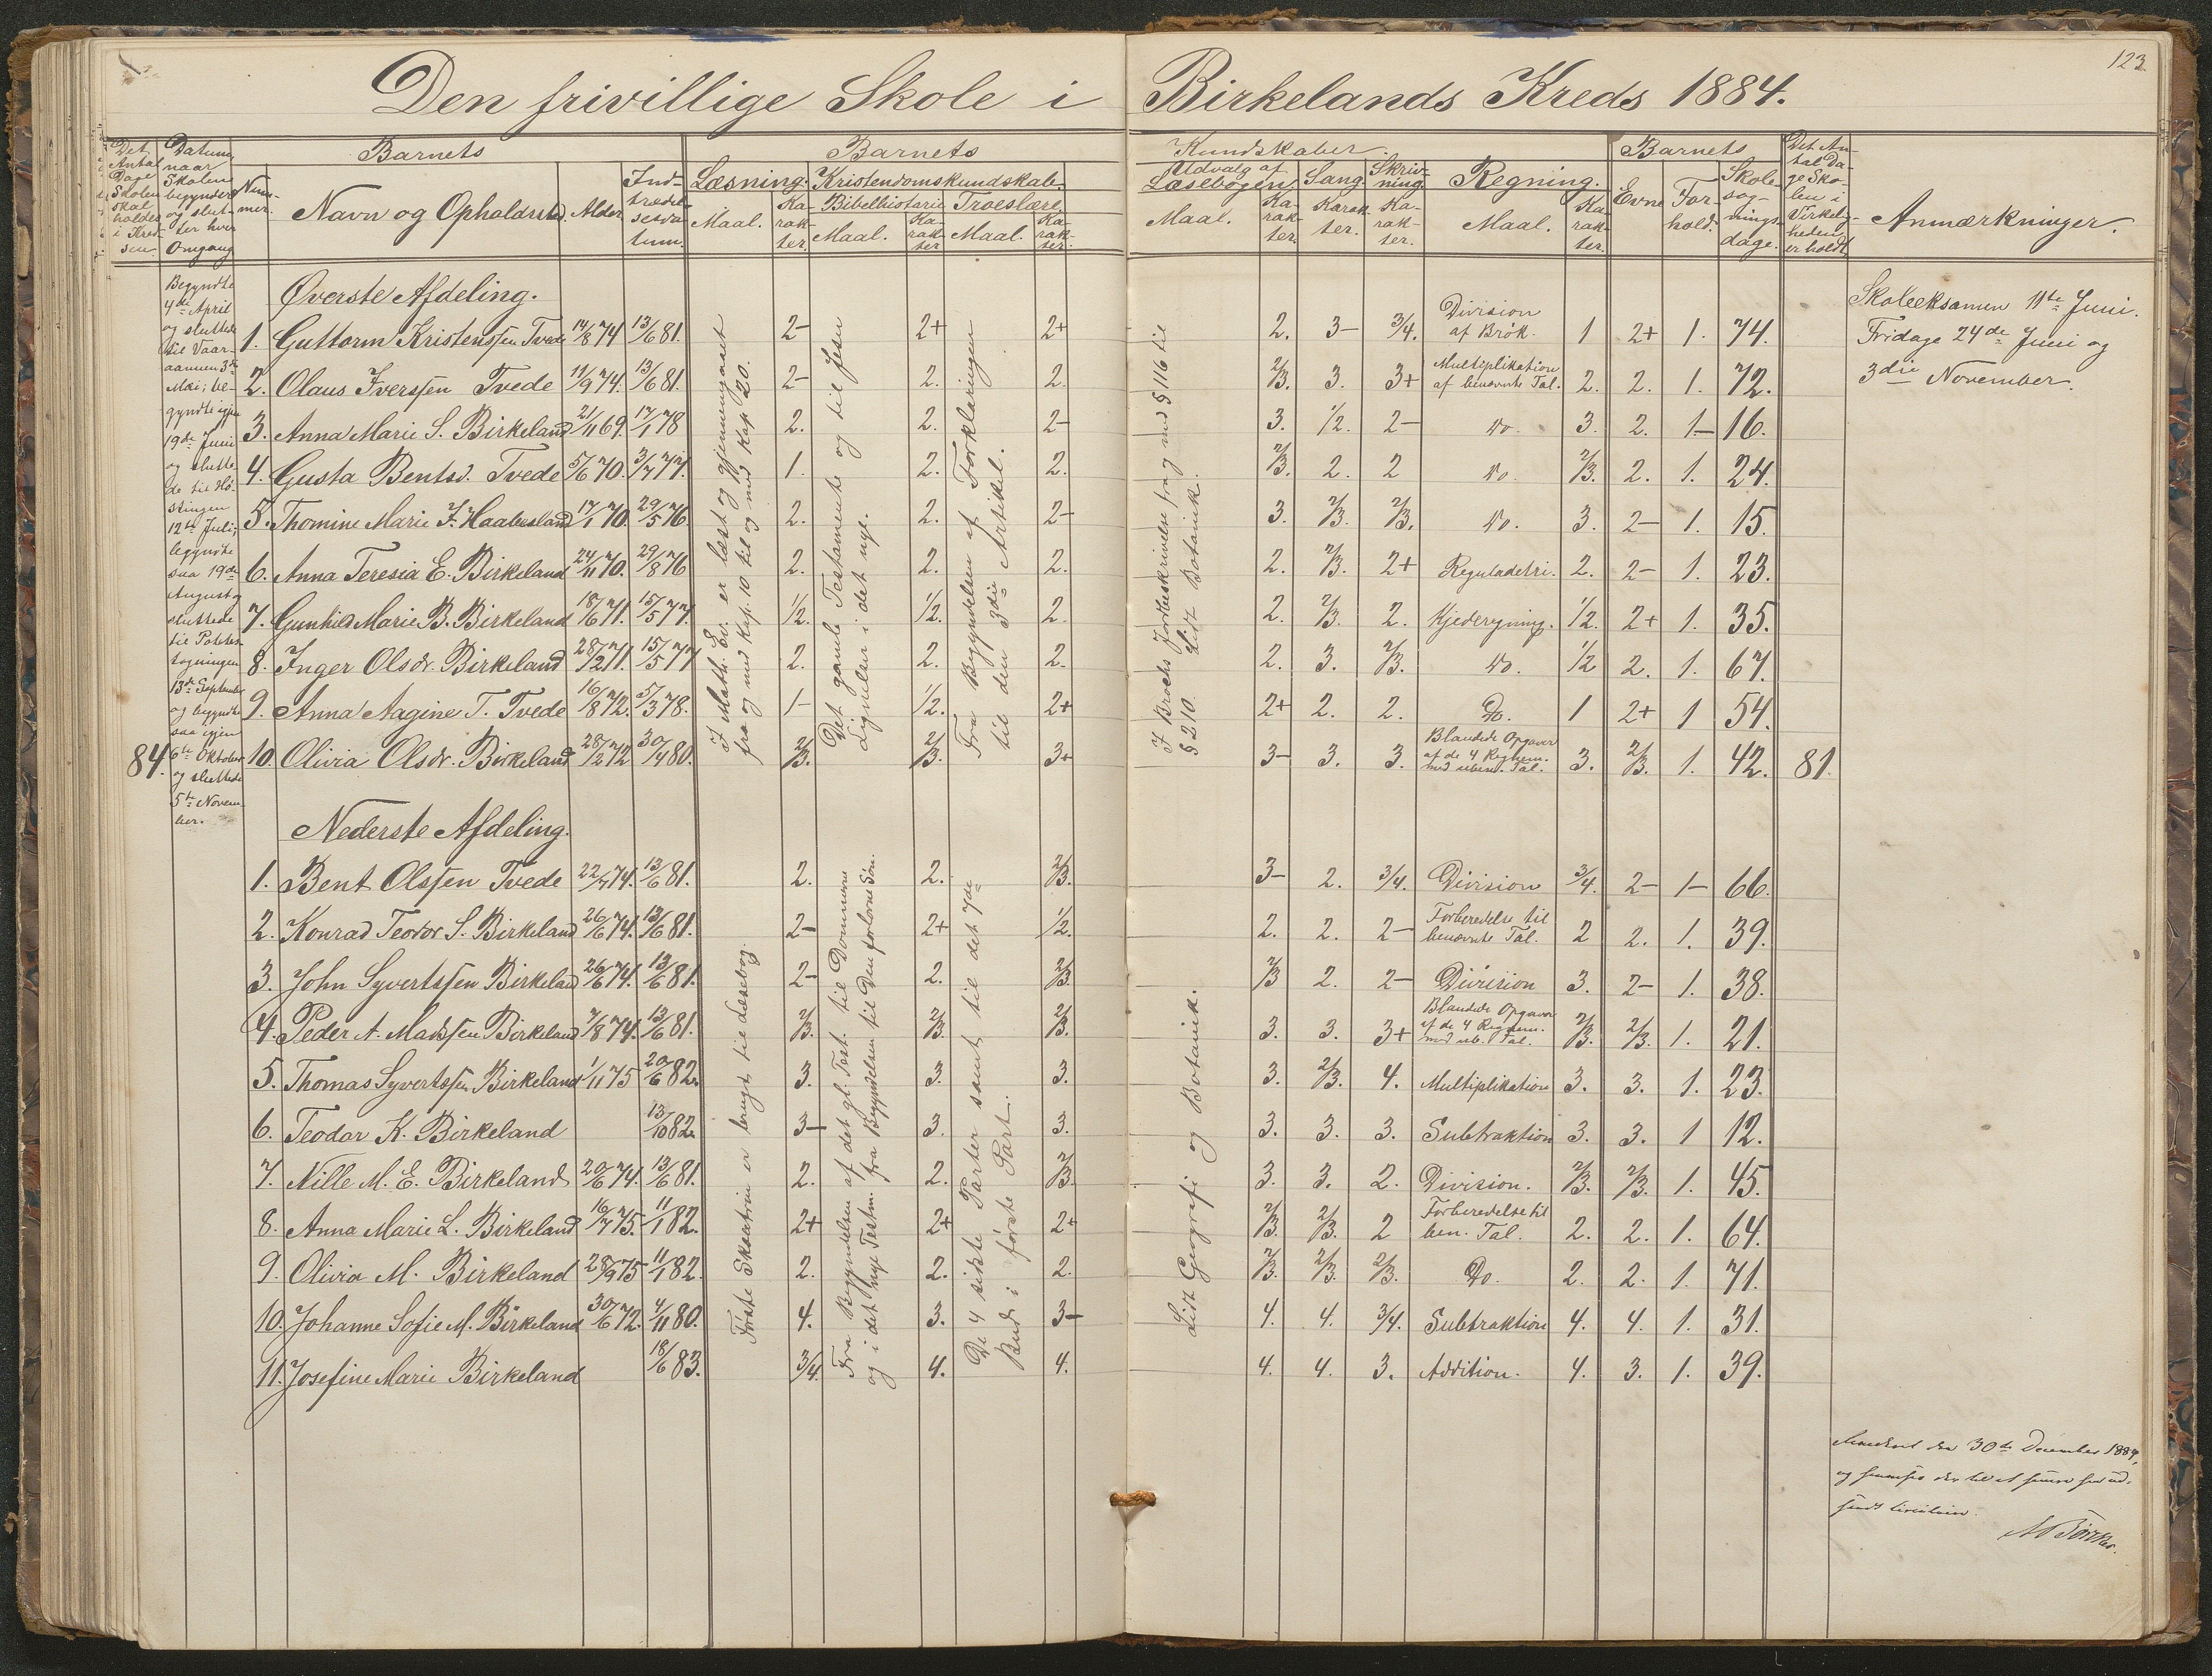 123
Den frivillige Skole i Birkelands Kreds 1884.
Det Antal Dage Skolen skal holdes i Kredsen
Datum, naar Skolen begynder og slutter hver Omgang
Barnets
Nummer.
Navn og Opholdssted.
Alder.
Indtrædelsesdatum.
Barnets
Læsning.
Maal.
Karakter.
Kristendomskundskab.
Bibelhistorie
Maal.
Karakter
Troeslære.
Maal.
Karakter.
Kundskaber.
Udvalg af Læsebogen.
Maal.
Karakter.
Sang.
Karakter.
Skrivning.
Karakter.
Regning.
Maal.
Karakter.
Barnets
Evne
Forhold.
Skolesøgningsdage.
Det Antal Dage Skolen i Virkeligheden er holdt
Anmærkninger.
Begyndte
4de April
og sluttede
til Vaar-
aannen 3die
Mai; be-
gyndte igjen
19de Juni
og slutte-
de til Hø-
stingen
12te Juli;
begyndte
saa 19de
August og
sluttede
til Potetes-
tagningen
13de September
og begyndte
saa igjen
6te Oktober
og sluttede
5te Novem-
ber.
84.
Øverste Afdeling.
1. Guttorm Kristenssen Tvede 14/8 74 13/6 81. 2- 2+ 2+ 2. 3- 3/4. Division af Brøk. 1 2+ 1. 74.
2. Olaus Iverssen Tvede 11/9 74. 13/6 81. 2- 2. 2. 2/3. 3. 3+ Multiplikation af benævnte Tal. 2. 2. 1. 72.
3. Anna Marie S. Birkeland 21/11 69. 17/1 78 2. 2. 2- 3. 1/2. 2- Do. 3. 2. 1- 16.
4. Gusta Bentsd. Tvede 5/6 70. 3/7 77. 1. 2. 2. 2/3. 2. 2 Do. 2/3. 2. 1. 24.
5. Thomine Marie F. Haabesland 17/1 70. 29/5 76. 2. 2. 2- 3. 2/3. 2/3. Do. 3. 2- 1. 15.
6. Anna Teresia E. Birkeland 24/11 70. 29/8 76 2. 2. 2. 2. 2/3. 2+ Reguladetri. 2. 2- 1. 23.
7. Gunhild Marie B. Birkeland 18/6 71. 15/5 77. 1/2. 1/2. 2. 2. 2/3. 2. Kjederegning. 1/2. 2+ 1. 35.
8. Inger Olsdr. Birkeland 28/2 71. 15/5 77 2. 2. 2. 2. 3. 2/3. Do. 1/2 2. 1. 67.
9. Anna Aagine T. Tvede 16/8 72. 5/3 78. 1- 1/2. 2+ 2+ 2. 2. Do. 1 2+ 1 54.
10. Olivia Olsdr. Birkeland 28/2 72 30/4 80. 2/3. 2/3. 3+ 3- 3. 3. Blandede Opgaver af de 4 Regnem. med uben. Tal. 3. 2/3. 1. 42. 81.
I Matth. Ev. er læst og gjennemgaaet
fra og med Kap. 10 til og med Kap 20.
Det gamle Testamente og til Jesu
Lignelser i det nye.
Fra Begyndelsen af Forklaringen
til den 3die Artikel.
I Brochs Jordbeskrivelse fra og med § 116 til
§ 210. Lidt Botanik.
Skoleeksamen 11te Juni.
Fridage 24de Juni og
3die November.
Nederste Afdeling.
1. Bent Olssen Tvede 22/7 74. 13/6 81. 2. 2. 2/3. 3- 2. 3/4. Division 3/4. 2- 1- 66.
2. Konrad Teodor S. Birkeland 26/6 74. 13/6 81. 2- 2+ 1/2. 2. 2. 2- Forberedelse til benævnte Tal. 2 2. 1. 39.
3. John Syvertssen Birkeland 26/6 74. 13/6 81. 2- 2. 2/3. 2/3 2. 2- Division 3. 2- 1. 38.
4. Peder A. Madssen Birkeland 7/8 74. 13/6 81. 2/3. 2/3. 2/3. 3. 3. 3+ Blandede Opgaver af de 4 Regnem. med ub. Tal. 2/3. 2/3. 1. 21.
5. Thomas Syvertssen Birkeland 1/11 75 20/6 82. 3. 3. 3. 3. 2/3. 4. Multiplikation 3. 3. 1. 23.
6. Teodor K. Birkeland 13/10 82. 3- 3. 3. 3. 3. 3. Subtraktion 3. 3. 1 12.
7. Nille M. E. Birkeland 20/6 74. 13/6 81. 2. 2. 2/3. 3. 3. 2. Division. 2/3. 2/3. 1. 45.
8. Anna Marie L. Birkeland 16/7 75. 11/1 82. 2+ 2+ 2+ 2/3. 2/3. 2 Forberedelse til ben. Tal. 2. 2. 1. 64.
9. Olivia M. Birkeland 28/9 75 11/1 82. 2. 2. 2. 2/3. 2/3. 2/3. Do. 2. 2. 1. 71.
10. Johanne Sofie M. Birkeland 30/6 72. 4/11 80. 4. 3. 3- 4. 4. 3/4. Subtraktion 4. 4. 1. 31.
11. Josefine Marie Birkeland 18/6 83. 3/4. 4. 4. 4. 4. 3. Addition. 4. 3. 1. 39.
Første Skoletrin er brugt til Læsebog.
Fra Begyndelsen af det gl. Test. til Dommerne
og i det nye Testm. fra Begyndelsen til Den fortabte Søn.
De 4 sidste Parter samt til det 7de
Bud i første Part.
Lidt Geografi og Botanik.
den 30de December 1884,